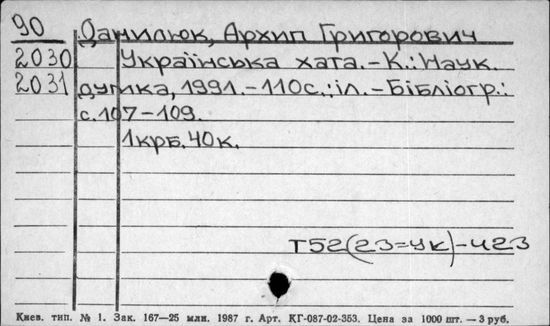 90 Данилюк, Архип Григорович
2030 Українська хата.-К.: Наук.
2031 думка, 1991.-110с.: іл.-Бібліогр.:
с.107-109.
1крб.40к.
Т52(23=УК)-423
Киев. тип. № 1. Зак. 167—25 млн. 1987 г. Арт. КГ-087-02-353. Цена за 1000 шт. — 3 руб.